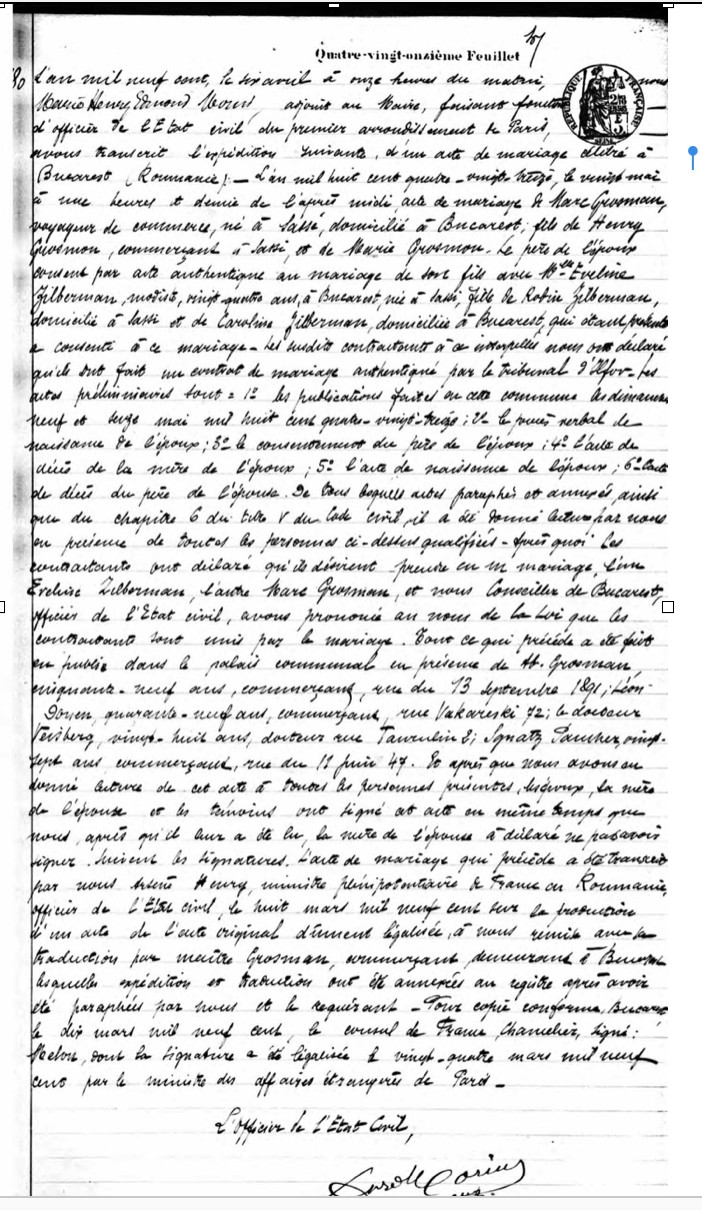 Quatre-vingt-onzième Feuillet
L'an mil neuf cent, le six avril à onze heures du matin, nous
Marie Henry Edmond Worms, adjoint au Maire, faisant fonctions
d'officier de l'Etat civil du premier arrondissement de Paris,
avons transcrit l'expédition suivante, d'un acte de mariage célébré à
Bucarest (Roumanie) : — L'an mil huit cent quatre-vingt-treize, le vingt mai
à une heures et demie de l'après midi acte de mariage de Marc Grosman,
voyageur de commerce, né à Jassi, domicilié à Bucarest ; fils de Henry
Grosmon, commerçant à Jassi, et de Marie Grosmon. Le père de l'époux
consent par acte authentique au mariage de son fils avec Mlle Eveline
Zilberman, modiste, vingt-quatre ans, à Bucarest, née à Jassi, fille de Robin Zilberman,
domicilié à Jassi et de Caroline Zilberman, domiciliée à Bucarest, qui étant présente
a consenti à ce mariage - Les susdits contractants à ce interpellés nous ont déclaré
qu'ils ont fait un contrat de mariage authentiqué par le tribunal d'Ilfov - Les
actes préliminaires sont : 1º les publications faites en cette commune les dimanches
neuf et seize mai mil huit cent quatre-vingt-treize ; 2º le procès verbal de
naissance de l'époux ; 3º le consentement du père de l'époux ; 4º l'acte de
décès de la mère de l'époux ; 5º l'acte de naissance de l'épouse ; 6º l'acte
de décès du père de l'épouse. De tous lesquels actes paraphés et annexés, ainsi
que du chapitre 6 du titre V du Code civil, il a été donné lecture par nous
en présence de toutes les personnes ci-dessus qualifiées - Après quoi les
contractants ont déclaré qu'ils désirent prendre en mariage, l'un
Eveline Zilberman, l'autre Marc Grosman, et nous Conseiller de Bucarest,
officier de l'Etat civil, avons prononcé au nom de la Loi que les
contractants sont unis par le mariage. Tout ce qui précède a été fait
en public dans le palais communal en présence de Ab. Grosman,
cinquante-neuf ans, commerçant, rue du 13 septembre 1891 ; Léon
quarante-neuf ans, commerçant, rue Vakareski 72 ; le docteur
vingt-huit ans, docteur rue 8 ; Ignatz vingt-
sept ans commerçant, rue du 11 juin 47. Et après que nous avons eu
donné lecture de cet acte à toutes les personnes présentes, les époux, la mère
de l'épouse et les témoins ont signé cet acte en même temps que
nous, après qu'il leur a été lu, la mère de l'épouse à déclaré ne pas savoir
signer. Suivent les signatures. L'acte de mariage qui précède a été transcrit
par nous Arsène Henry, ministre plénipotentiaire de France en Roumanie,
officier de l'Etat civil, le huit mars mil neuf cent sur la production
d'un acte de l'acte original dûment légalisée, à nous remise avec la
traduction par maître Grosman, commerçant, demeurant à Bucarest
lesquelles expédition et traduction ont été annexées au registre après avoir
été paraphées par nous et le requérant - Pour copie conforme, Bucarest
le dix mars mil neuf cent, le consul de France, Chancelier, signé :
Melon, dont la signature a été légalisée le vingt-quatre mars mil neuf
cent par le ministre des affaires étrangères de Paris -
L'Officier de l'Etat Civil,